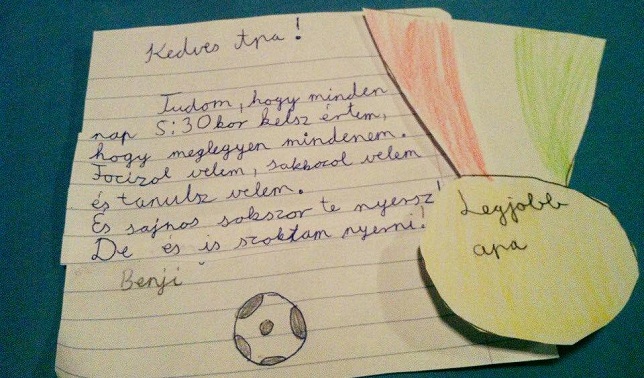 Kedves Apa!
Tudom, hogy minden
nap 5:30kor kelsz értem,
hogy meglegyen mindenem.
Focizol velem, sakkozol velem
és tanulsz velem.
És sajnos sokszor te nyersz!
De és is szoktam nyerni!
Benji
Legjobb
apa